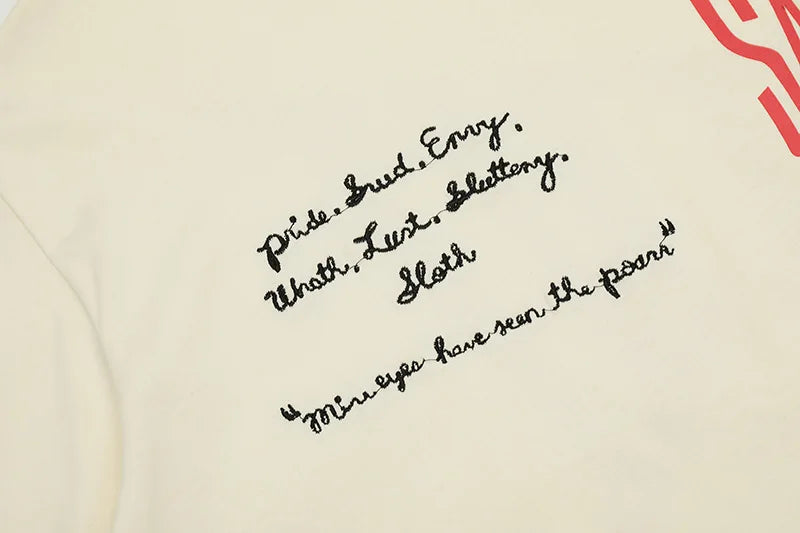 Pride. Grud. Envy.
Whath. Lust. Glutteny.
Sloth
"Mine eyes have seen the poarr"